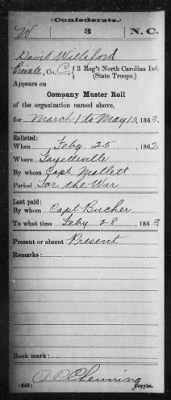 (Confederate.)
W 3 N.C.
David Williford
Private, Co. C, 3 Reg't North Carolina Inf.
(State Troops.)
Appears on
Company Muster Roll
of the organization named above,
for March 1 to May 12, 1863
Enlisted:
When Feby 25, 1862
Where Fayetteville
By whom Capt. Mallett
Period For the War
Last paid:
By whom Capt Bucher
To what time Feby 28, 1863
Present or absent Present
Remarks:
Book mark:
Copyist.